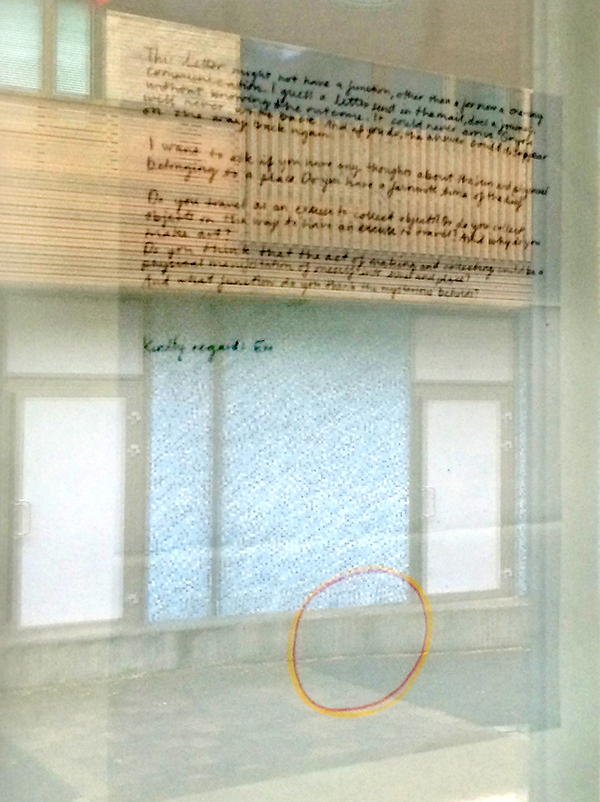 This letter might not have a function, other than a for now a one-way
communication. I guess a letter send in the mail, does a journey
without knowing the outcome. It could never arrive. Or you
will never write back. And if you do, the answer could disappear
on the way back again.
I want to ask if you have any thoughts about the
belonging to a place. Do you have a favourite time of the day?
Do you travel as an excuse to collect objects? Or do you collect
objects on the way to have an excuse to travel? And why do you
make art?
Do you think that the act of making and collecting could be a
physical manifestation of oneself with time and place?
And what function do you think the mysterious behold?
Kindly regards